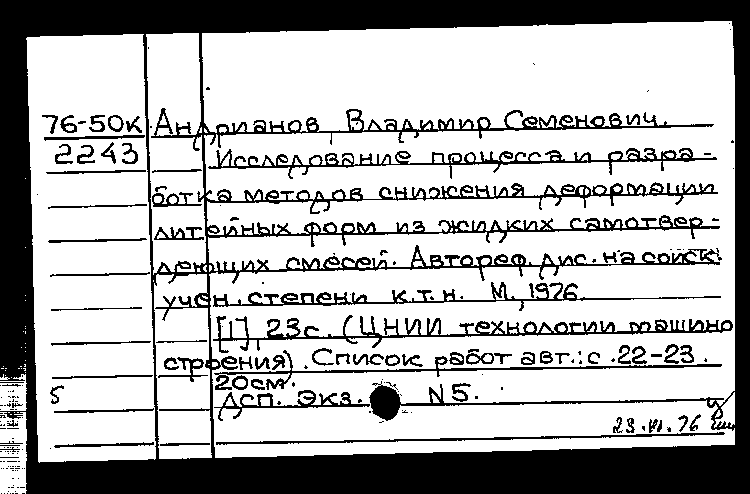 76-50к Андрианов, Владимир Семенович.
2243 Исследование процесса и разра-
ботка методов снижения деформации
литейных форм из жидких самотвер-
деющих смесей. Автореф. дис. на соиск.
учен. степени к.т.н. М., 1976.
[1], 23с. (ЦНИИ технологии машино
строения). Список работ авт.: с. 22-23.
20см.
5 Дсп. Экз. N5.
23.VI.76